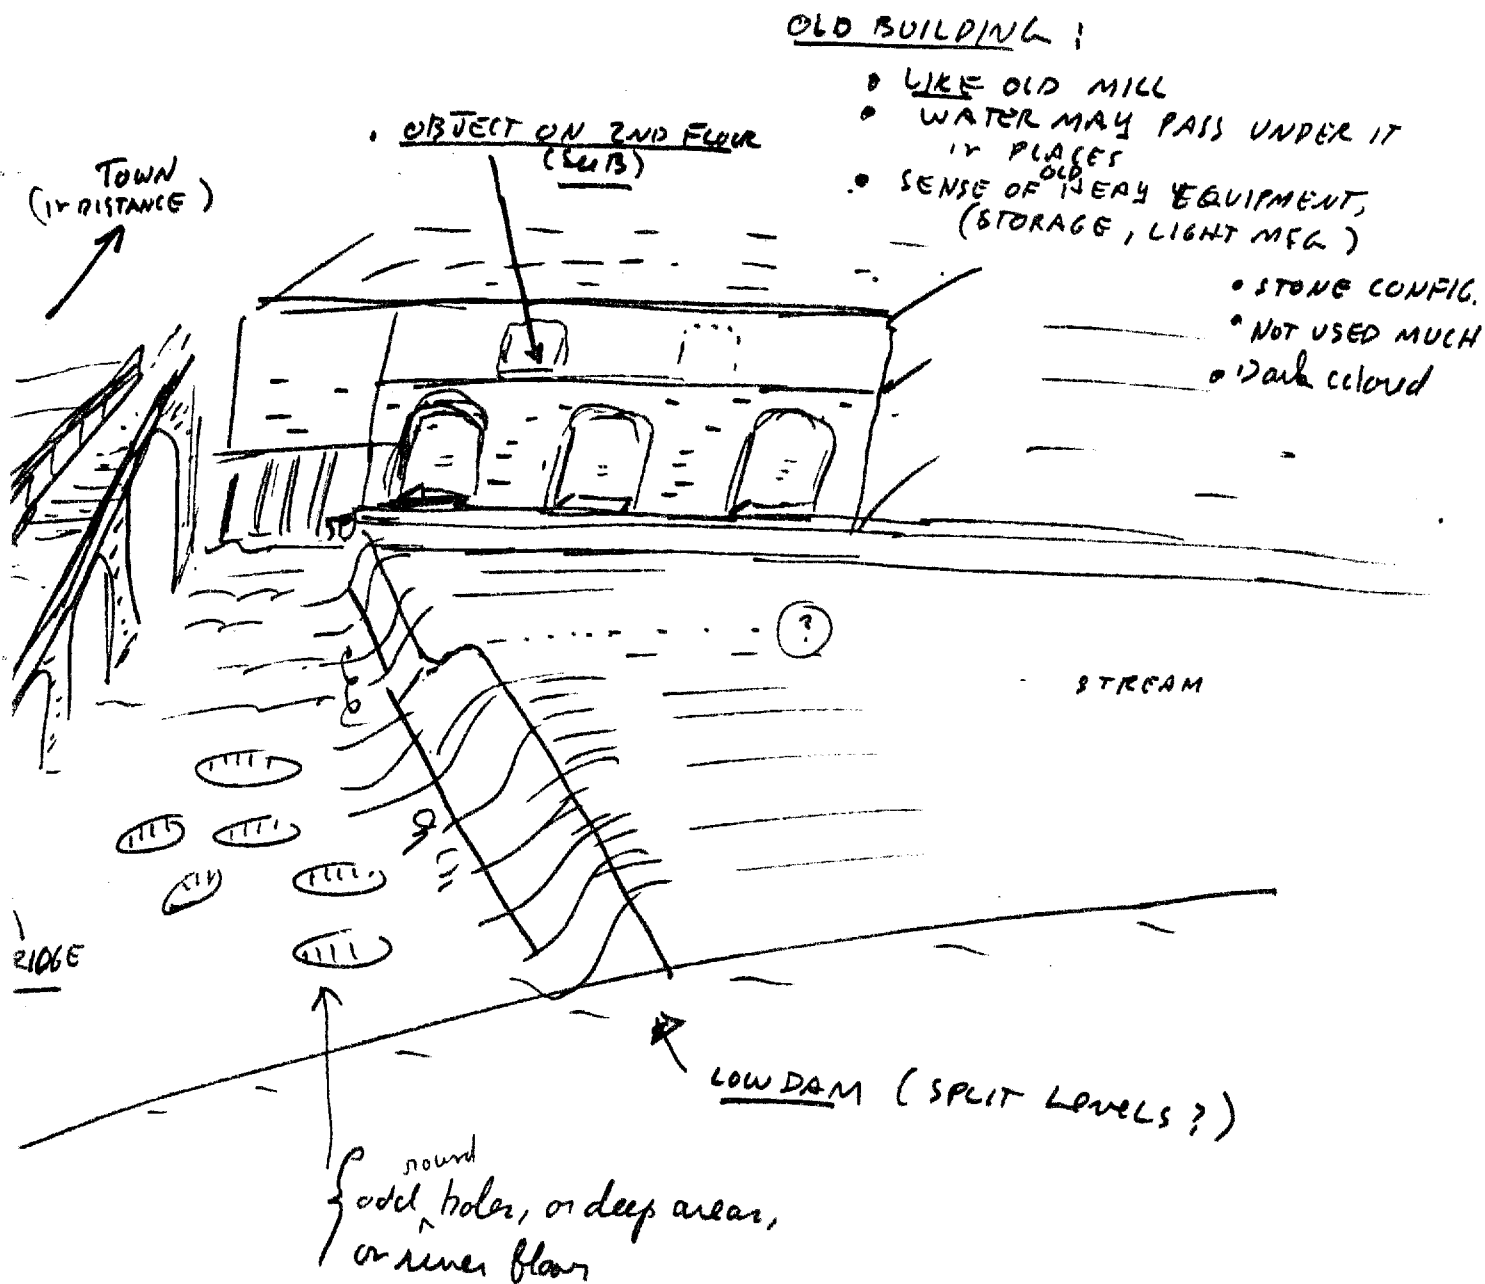 OLD BUILDING :
• LIKE OLD MILL
• WATER MAY PASS UNDER IT
in PLACES
• SENSE OF OLD HEAY EQUIPMENT,
(STORAGE, LIGHT MFG)
• STONE CONFIG.
• NOT USED MUCH
• Dark
. OBJECT ON 2ND FLOOR
(SUB)
TOWN
(in DISTANCE)
?
STREAM
RIDGE
LOW DAM (SPLIT LEVELS?)
odd round holes, or deep areas,
on river floor